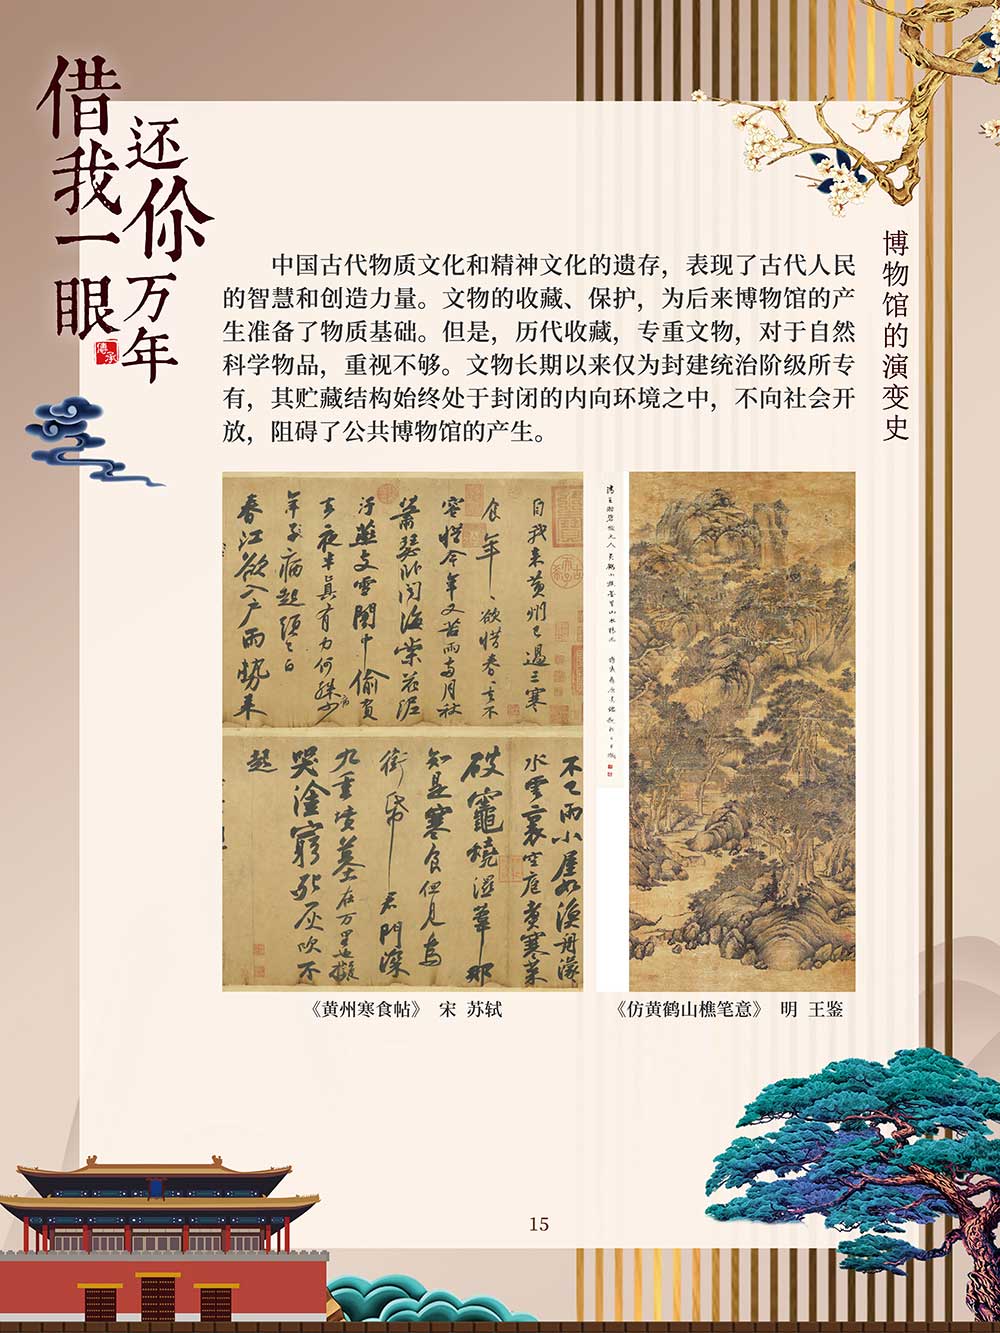 借我一眼
还你万年
傳承
博物馆的演变史
中国古代物质文化和精神文化的遗存，表现了古代人民
的智慧和创造力量。文物的收藏、保护，为后来博物馆的产
生准备了物质基础。但是，历代收藏，专重文物，对于自然
科学物品，重视不够。文物长期以来仅为封建统治阶级所专
有，其贮藏结构始终处于封闭的内向环境之中，不向社会开
放，阻碍了公共博物馆的产生。
自我来黄州已過三寒
食年〻欲惜春〻去不
容惜今年又苦雨兩月秋
蕭瑟卧聞海棠花泥
汙燕支雪闇中偷負
去夜半真有力何殊少
年子病起頭已白
春江欲入户雨勢来
不已雨小屋如漁舟濛〻
水雲裏空庖煮寒菜
破竈燒濕葦那
知是寒食但見烏
銜帋君門深
九重墳墓在万里也擬
哭塗窮死灰吹不
起
《黄州寒食帖》 宋 苏轼
《仿黄鹤山樵笔意》 明 王鉴
15